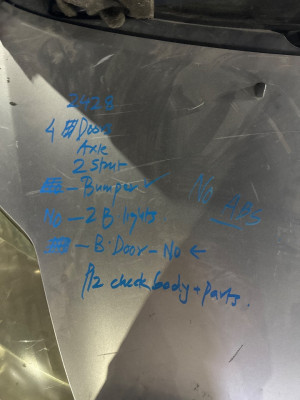 2428
4 Doors
Axle
2 Strut
- Bumper ✓
No - 2 B.lights
- B.Door - No ←
Plz check body + parts.
No